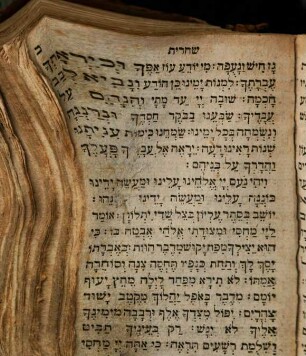 שחרית
גז חיש ונעפה: מי יודע עוז אפך וכיראתך
עברתך: למנות ימינו כן הודע ונביא לבב
חכמה: שובה יי עד מתי והנחם על
עבדיך: שבענו בבקר חסדך ונרננה
ונשמחה בכל ימינו: שמחנו כימות עניתנו
שנות ראינו רעה: יראה אל עבדיך פעלך
והדרך על בניהם:
ויהי נעם יי אלהינו עלינו ומעשה ידינו
כוננה עלינו ומעשה ידינו כוננהו:
יושב בסתר עליון בצל שדי יתלונן: אומר
ליי מחסי ומצודתי אלהי אבטח בו: כי
הוא יצילך מפח יקוש מדבר הוות: באברתו
יסך לך ותחת כנפיו תחסה צנה וסוחרה
אמתו: לא תירא מפחד לילה מחץ יעוף
יומם: מדבר באפל יהלוך מקטב ישוד
צהרים: יפול מצדך אלף ורבבה מימינך
אליך לא יגש: רק בעיניך תביט
ושלמת רשעים תראה: כי אתה יי מחסי